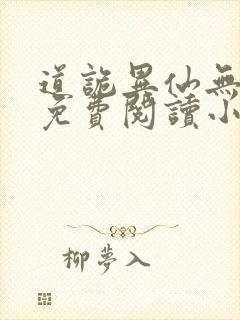 道詭異仙無
免費閱讀小
柳夢入